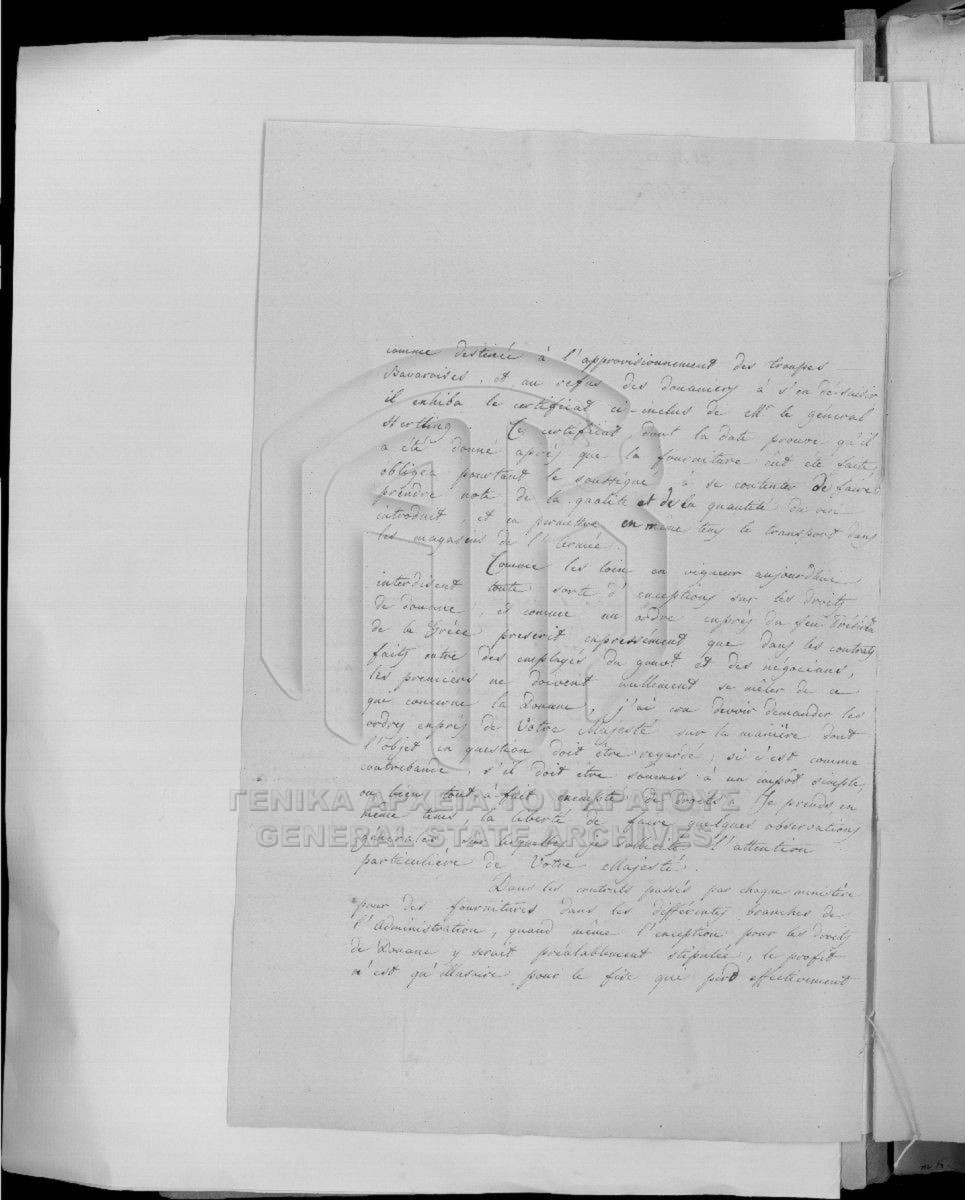 comme destinée à l'approvisionnement des troupes
Bavaroises, et au refus des douaniers à s'en désaisir
il exhiba le certificat ci-inclus de Mr le général
Hertling. Ce certificat, dont la date prouve qu'il
a été donné après que la fourniture eût été faite,
obligea pourtant le soussigné à se contenter de faire
prendre note de la qualité et de la quantité du vin
introduit, et en permettre en même tems le transport dans
les magasins de l'Armée.
Comme les loix en vigueur aujourd'hui
interdisent toute sorte d'exceptions sur les droits
de douane, et comme un ordre exprès du feu Président
de la Grèce prescrit expressément que dans les contrats
faits entre des employés du gouvt et des négocians,
les premiers ne doivent nullement se mêler de ce
qui concerne la Douane, j'ai cru devoir demander les
ordres exprès de Votre Majesté sur la manière dont
l'objet en question doit être regardé; si c'est comme
contrebande, s'il doit être soumis à un impôt simple,
ou bien tout à fait exempté de droits. Je prends en
même tems, la liberté de faire quelques observations
générales sur lesquelles je sollicite l'attention
particulière de Votre Majesté.
Dans les contrats passés par chaque ministère
pour des fournitures dans les différentes branches de
l'Administration, quand même l'exception pour les droits
de Douane y serait préalablement stipulée, le profit
n'est qu'illusoire pour le fisc qui perd effectivement
ΓΕΝΙΚΑ ΑΡΧΕΙΑ ΤΟΥ ΚΡΑΤΟΥΣ
GENERAL STATE ARCHIVES